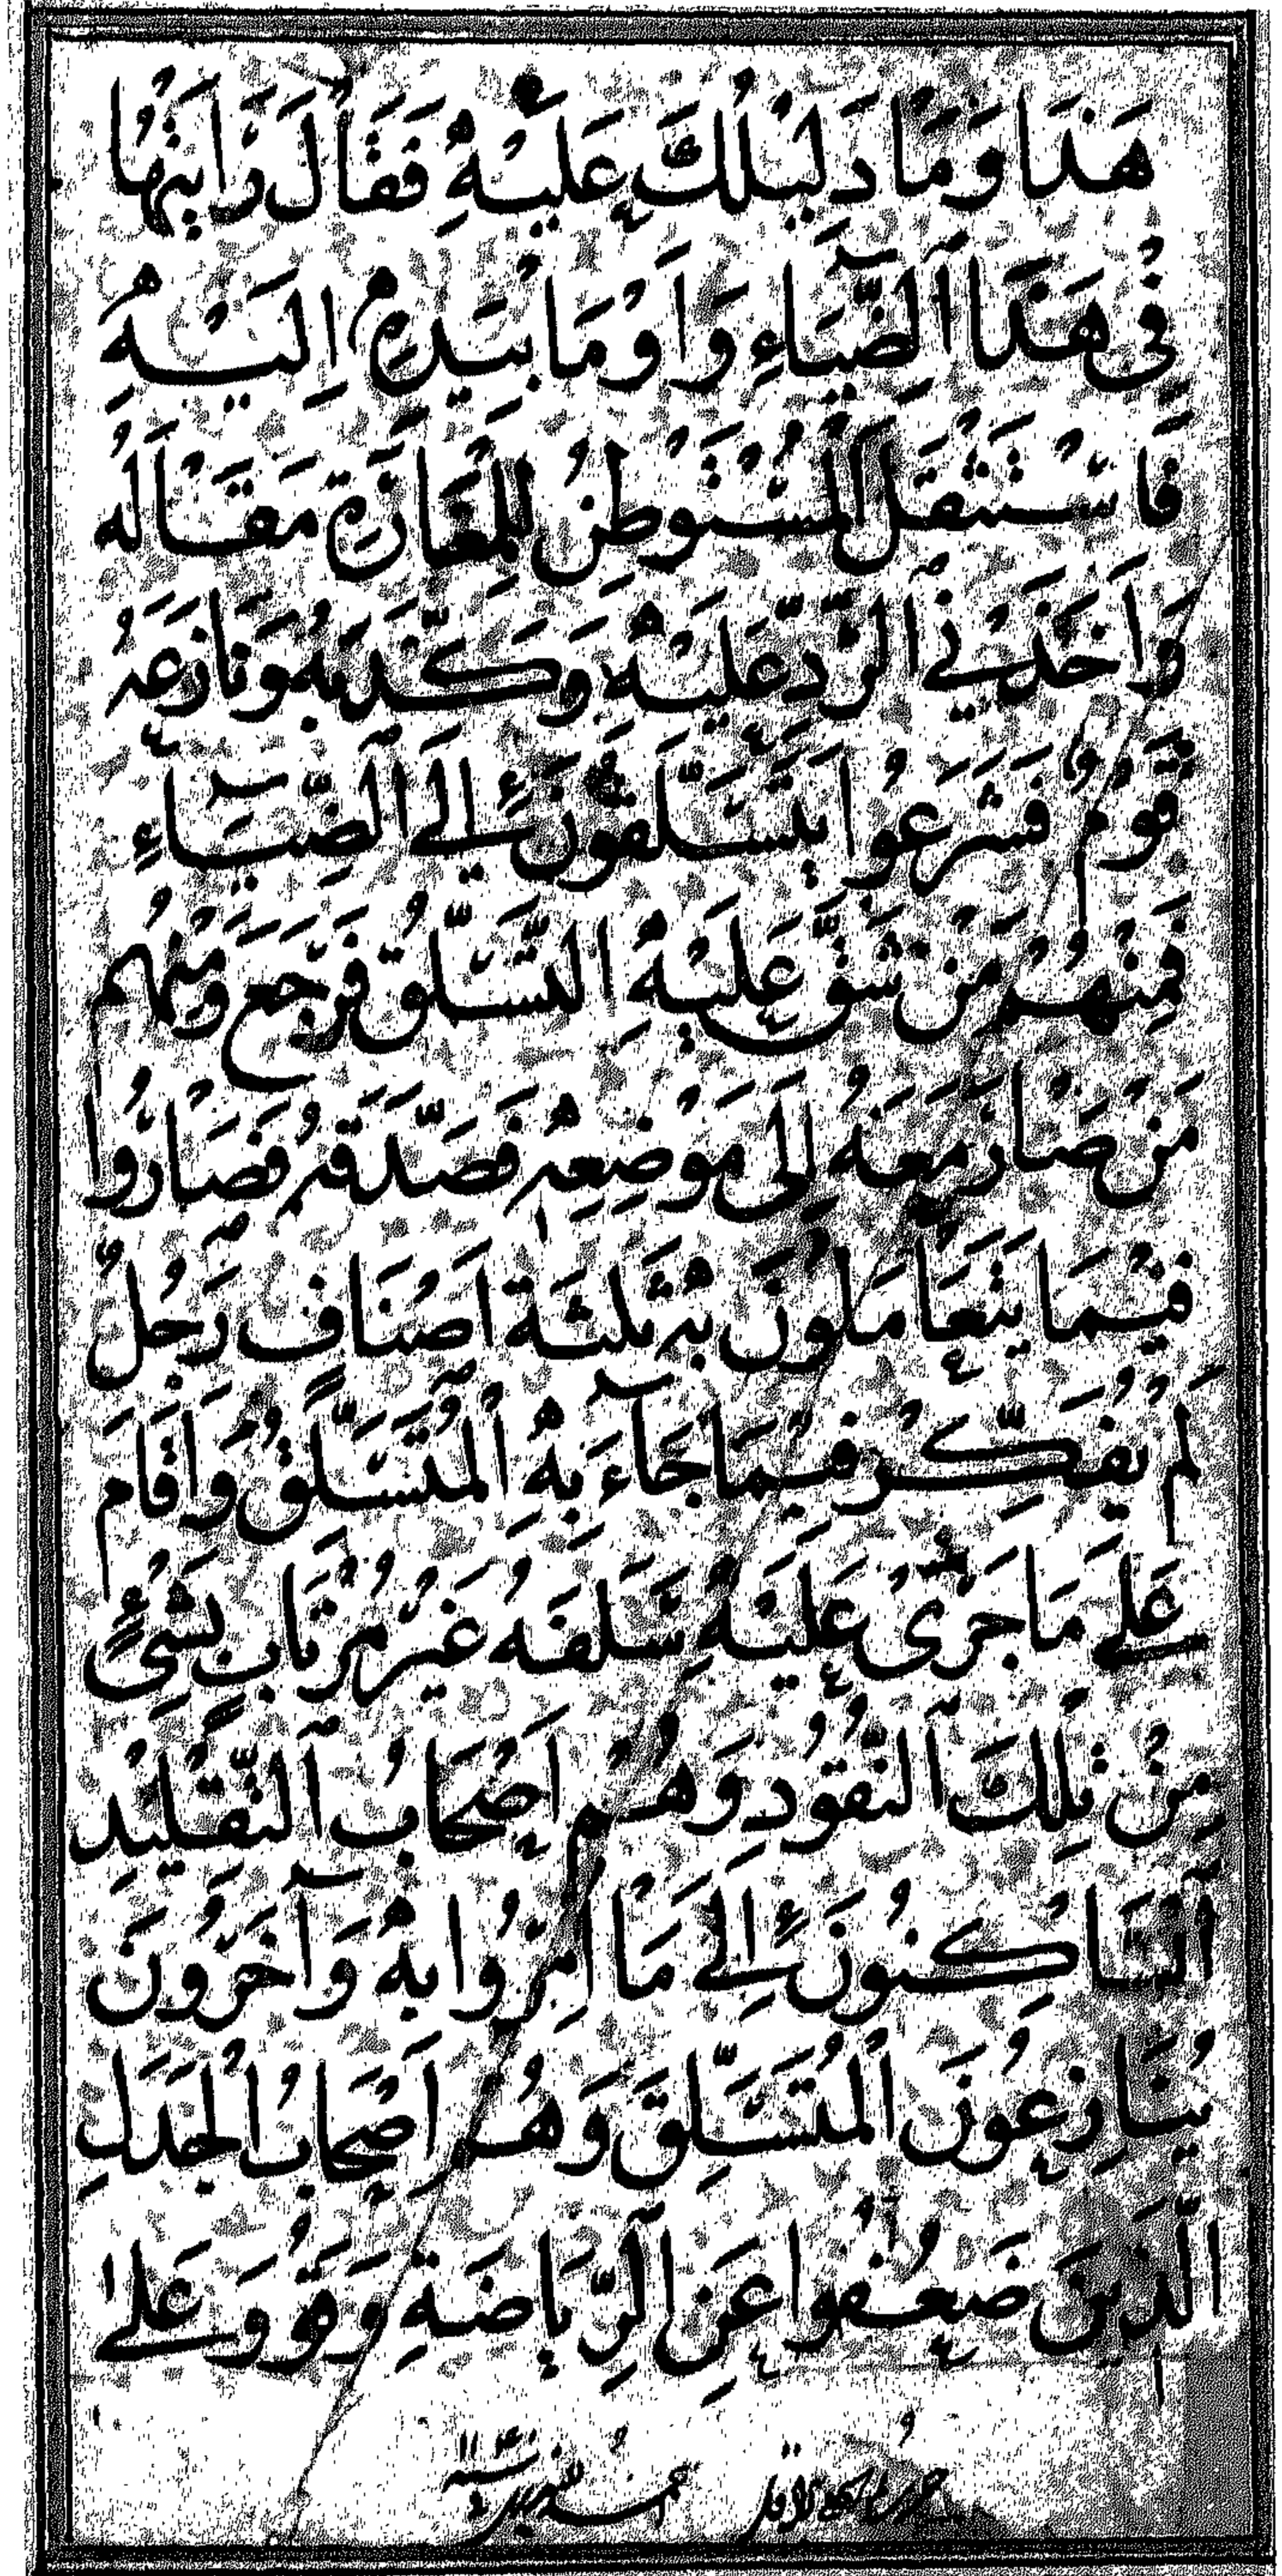 هَذَا وَمَا دَلِيْلُكَ عَلَيْهِ فَقَالَ رَاَيْتُهَا
فِيْ هَذَا الضِّيَاءِ وَاَوْمَا بِيَدِهِ اِلَيْهِ
فَاسْتَثْقَلَ الْمُسْتَوْطِنُ لِلْمَغَارَةِ مَقَالَهُ
وَاَخَذَ فِي الرَّدِّ عَلَيْهِ وَكَذَّبَهُ وَنَازَعَهُ
قَوْمٌ فَشَرَعُوا يَتَسَلَّقُوْنَ اِلَى الضِّيَاءِ
فَمِنْهُمْ مَنْ شَقَّ عَلَيْهِ التَّسَلُّقُ فَرَجَعَ وَمِنْهُمْ
مَنْ صَارَ مَعَهُ اِلَى مَوْضِعِهِ فَصَدَّقَهُ فَصَارُوا
فِيْمَا يَتَعَامَلُوْنَ بِهِ ثَلٰثَةَ اَصْنَافٍ رَجُلٌ
لَمْ يُفَكِّرْ فِيْمَا جَاءَ بِهِ الْمُتَسَلِّقُ وَاَقَامَ
عَلَى مَا جَرَى عَلَيْهِ سَلَفُهُ غَيْرُ مُرْتَابٍ بِشَيْءٍ
مِنْ تِلْكَ النُّقُوْدِ وَهُمْ اَصْحَابُ التَّقْلِيْدِ
السَّاكِنُوْنَ اِلَى مَا اُمِرُوا بِهِ وَآخَرُوْنَ
يُنَازِعُوْنَ الْمُتَسَلِّقَ وَهُمْ اَصْحَابُ الْجَدَلِ
الَّذِيْنَ ضَعُفُوا عَنِ الرِّيَاضَةِ وَقَوُوا عَلَى